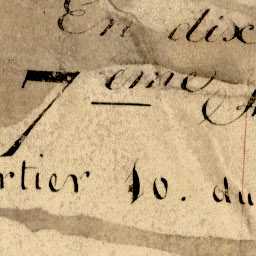 En dix
7 eme
rtier 10. du